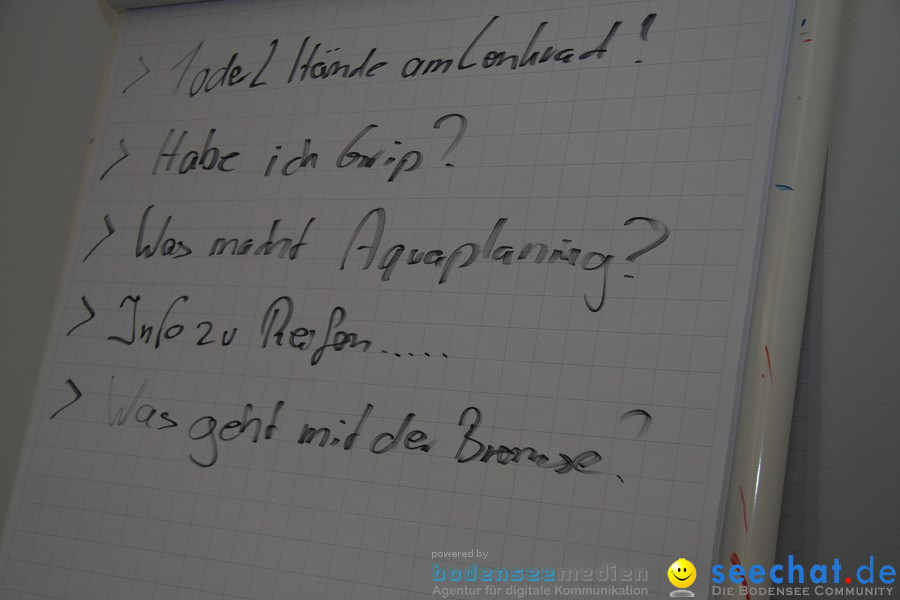 > 1 oder 2 Hände am Lenkrad!
> Habe ich Grip?
> Was macht Aquaplaning?
> Info zu Reifen.....
> Was geht mit der Bremse?
powered by
bodenseemedien
Agentur für digitale Kommunikation
seechat.de
Die Bodensee Community